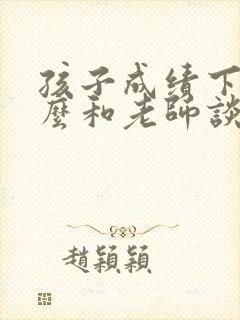 孩子成绩下
麼和老師談
趙穎穎